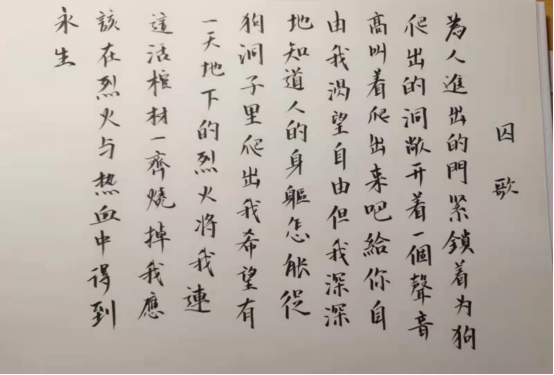 囚歌
為人進出的門紧鎖着为狗
爬出的洞敞开着一個聲音
高叫着爬出来吧給你自
由我渴望自由但我深深
地知道人的身軀怎能從
狗洞子里爬出我希望有
一天地下的烈火将我連
這活棺材一齊燒掉我應
該在烈火与热血中得到
永生